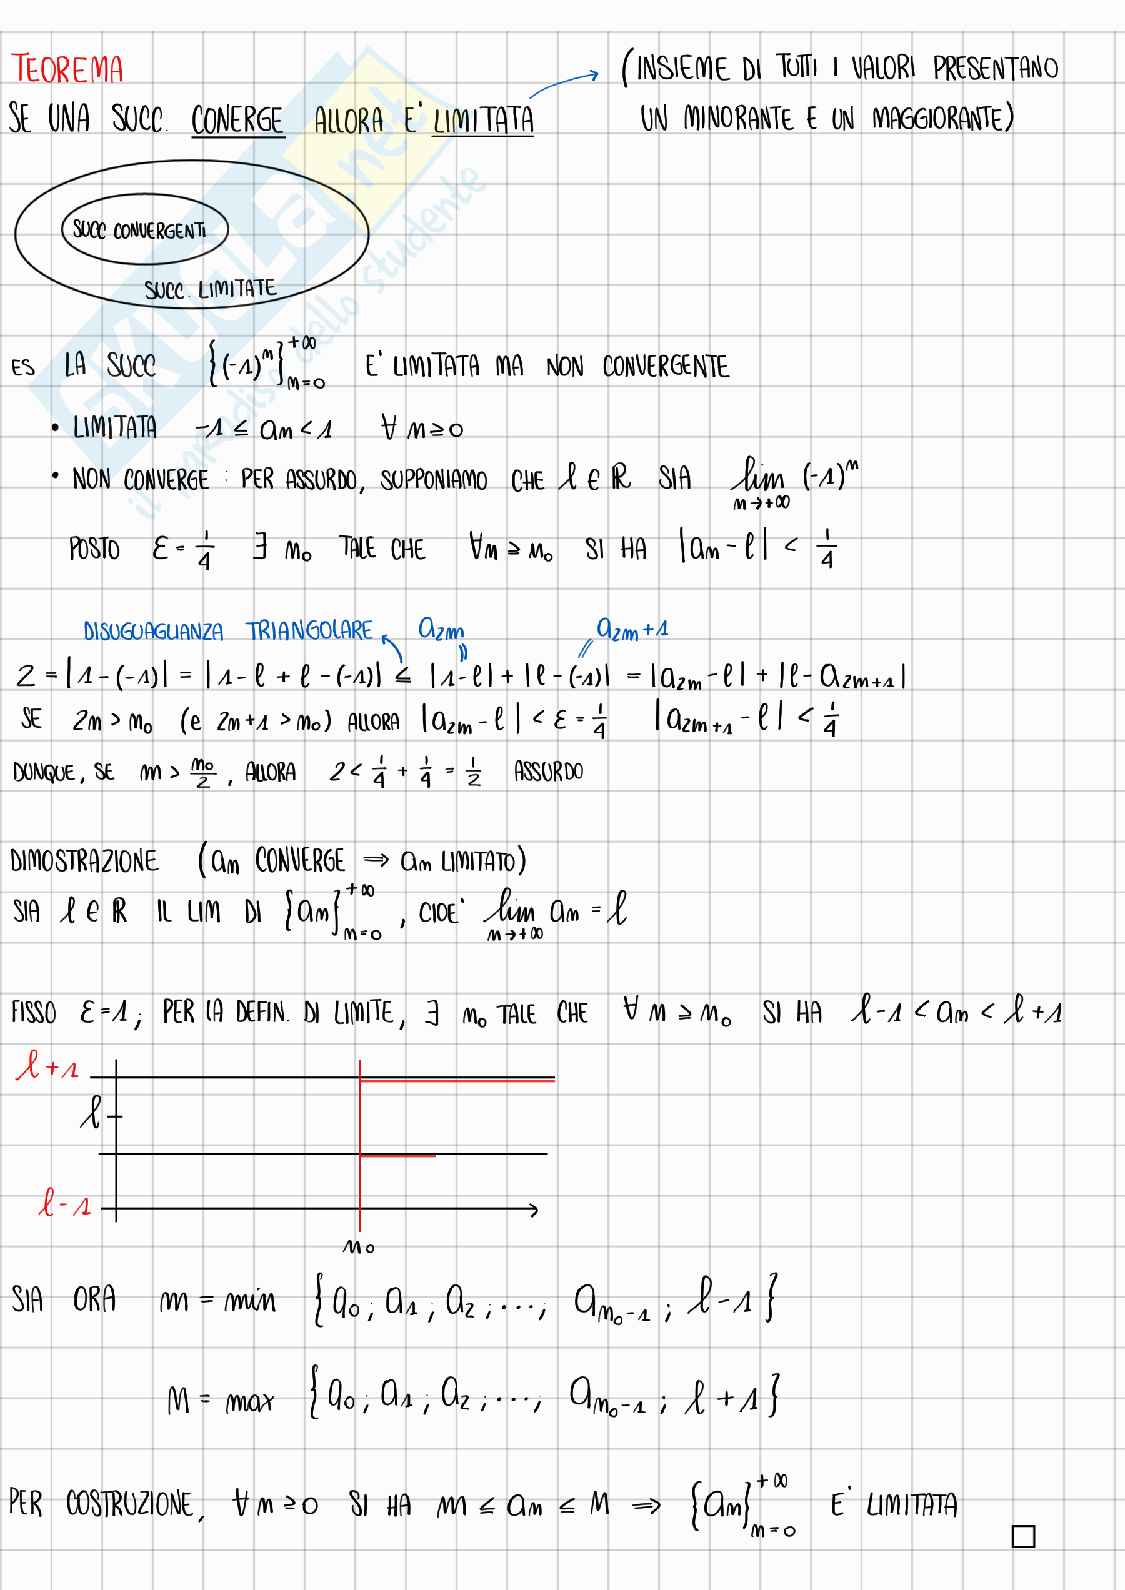 TEOREMA
(INSIEME DI TUTTI I VALORI PRESENTANO
UN MINORANTE E UN MAGGIORANTE)
SE UNA SUCC. CONERGE ALLORA E' LIMITATA
SUCC CONVERGENTI
SUCC. LIMITATE
SKUOLA.net
il paradiso dello studente
ES LA SUCC {(-1)^n}_{n=0}^{+∞} E' LIMITATA MA NON CONVERGENTE
• LIMITATA -1 ≤ an < 1 ∀ n ≥ 0
• NON CONVERGE : PER ASSURDO, SUPPONIAMO CHE ℓ ∈ R SIA lim_{n→+∞} (-1)^n
POSTO ε = 1/4 ∃ n₀ TALE CHE ∀n ≥ n₀ SI HA |an - ℓ| < 1/4
DISUGUAGLIANZA TRIANGOLARE a_{2m} a_{2m+1}
2 = |1-(-1)| = |1-ℓ + ℓ-(-1)| ≤ |1-ℓ| + |ℓ-(-1)| = |a_{2m}-ℓ| + |ℓ-a_{2m+1}|
SE 2m > n₀ (e 2m+1 > n₀) ALLORA |a_{2m} - ℓ| < ε = 1/4 |a_{2m+1} - ℓ| < 1/4
DUNQUE, SE m > n₀/2, ALLORA 2 < 1/4 + 1/4 = 1/2 ASSURDO
DIMOSTRAZIONE (an CONVERGE ⇒ an LIMITATO)
SIA ℓ ∈ R IL LIM DI {an}_{n=0}^{+∞}, CIOE' lim_{n→+∞} an = ℓ
FISSO ε=1; PER LA DEFIN. DI LIMITE, ∃ n₀ TALE CHE ∀ n ≥ n₀ SI HA ℓ-1 < an < ℓ+1
ℓ+1
ℓ
ℓ-1
n₀
SIA ORA m = min {a₀; a₁; a₂; ...; a_{n₀-1}; ℓ-1}
M = max {a₀; a₁; a₂; ...; a_{n₀-1}; ℓ+1}
PER COSTRUZIONE, ∀ n ≥ 0 SI HA m ≤ an ≤ M ⇒ {an}_{n=0}^{+∞} E' LIMITATA □